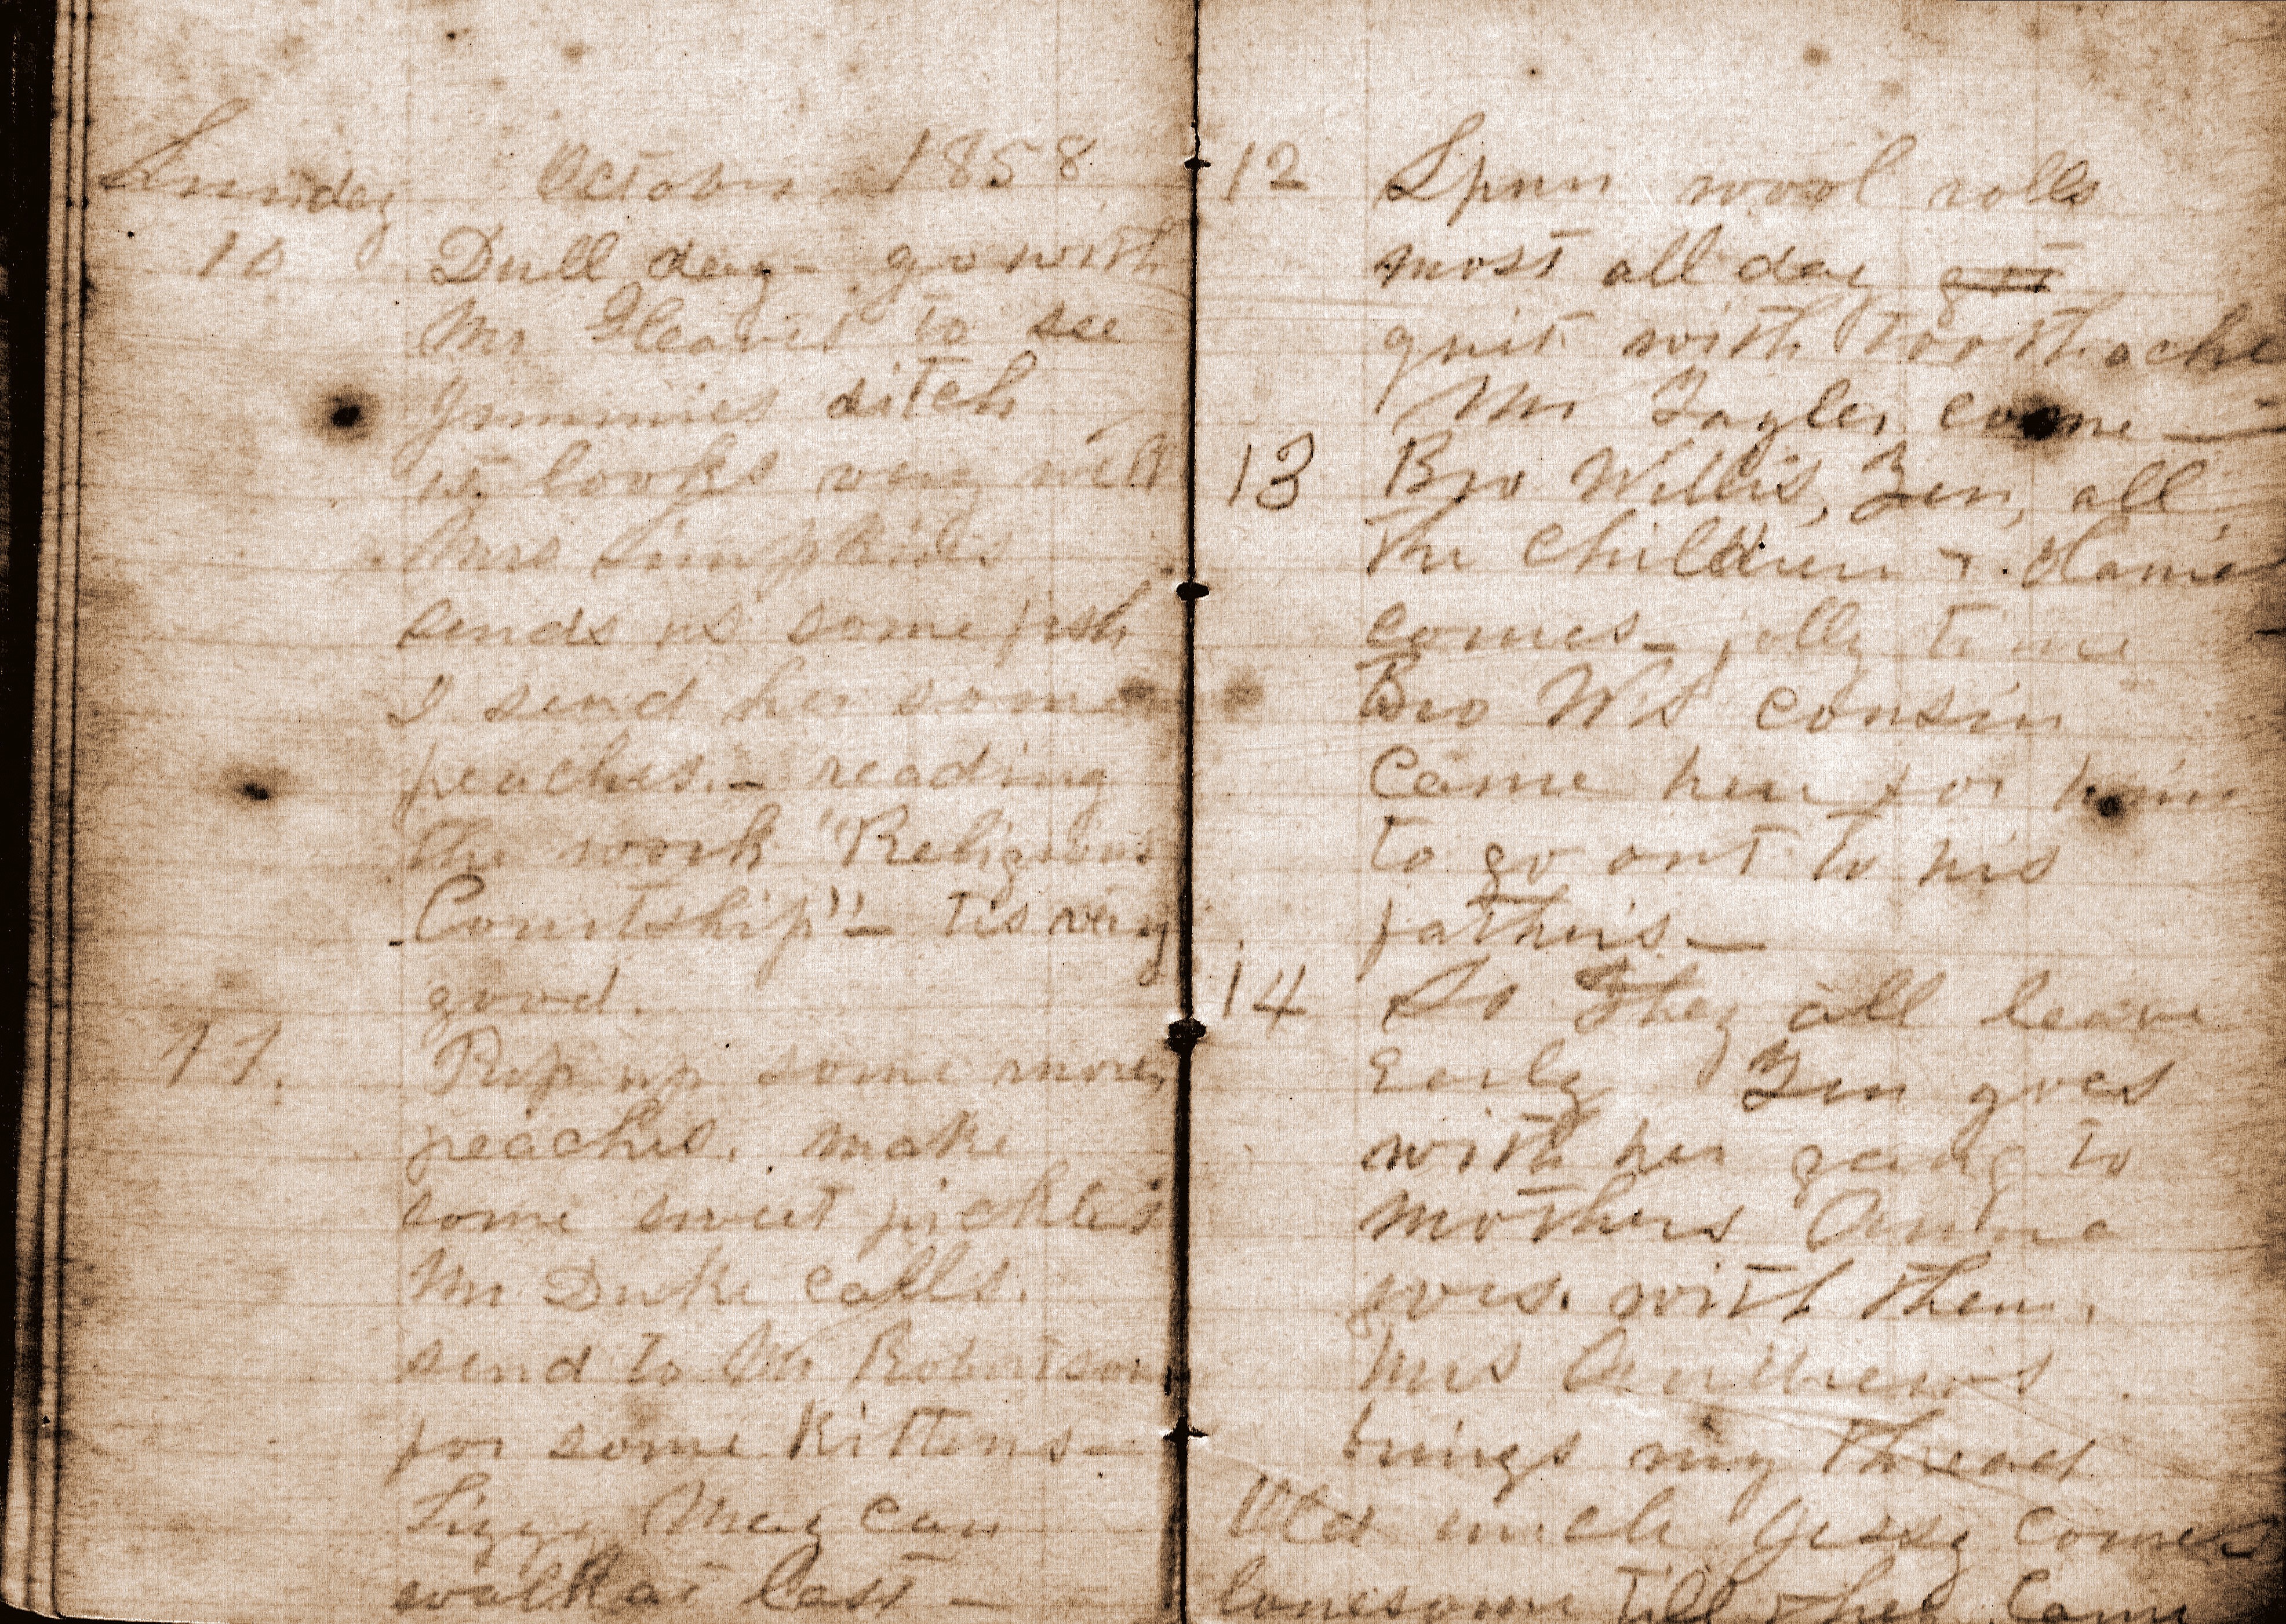 Sunday October 1858
10 Dull day - go with
Mr Gleaves to see
Jimmies ditch
it looks very well
Mrs Simpkins
sends us some fish
I send her some
peaches. - reading
the work "Religious
Courtship" - tis very
good.
11. Put up some more
peaches. make
some sweet pickles
Mr Duke calls.
send to Mr Robertson
for some kittens -
Lizzy May can
walk at last -
12 Spun wool rolls
most all day got
quit with toothache
Mr Tayler come -
13 Bro Willis, Zen, all
the children &
comes - jolly time
Bro W's cousin
came here for him
to go out to his
father's -
14 So They all leave
Early Zen goes
with her going to
mothers Anna
goes. with them.
Mrs Andrews
brings my thread
Old uncle Jessy comes
lonesome till they